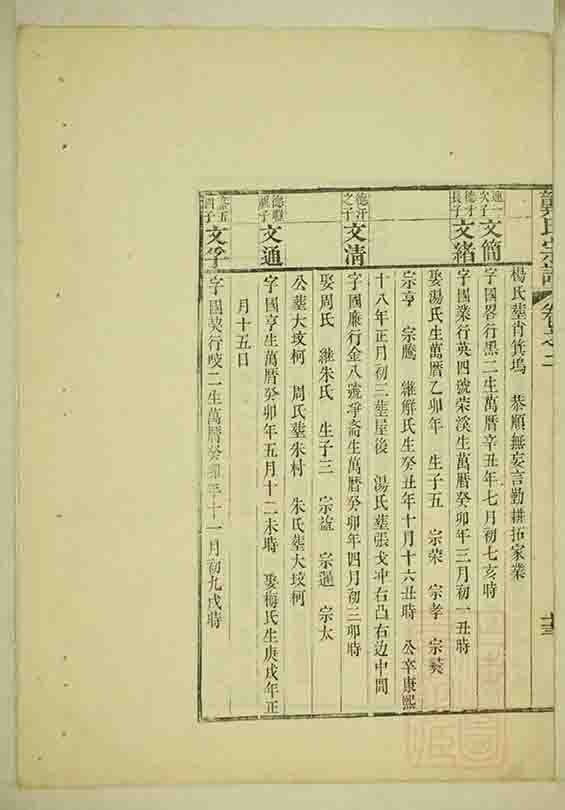 氏宗譜
卷
楊氏塟肯箕塢 恭順無妄言勤耕拓家業
連一次子
文簡
字國畧行黑二生萬曆辛丑年七月初七亥時
德才長子
文緒
字國業行英四號荣溪生萬曆癸卯年三月初一丑時
娶湯氏生萬曆乙卯年 生子五 宗荣 宗孝 宗
宗亨 宗鵬 繼解氏生癸丑年十月十六丑時 公卒康熙
十八年正月初三塟屋後 湯氏塟張戈冲右凸右边中間
德汗之子
文清
字國廉行金八號爭斋生萬曆癸卯年四月初三卯時
娶周氏 繼朱氏 生子三 宗益 宗暹 宗太
公塟大坟柯 周氏塟朱村 朱氏塟大坟柯
德 子
文通
字國亨生萬曆癸卯年五月十二未時 娶梅氏生庚戌年正
月十五日
文孚
字國 行 二生萬曆癸卯年十一月初九戌時